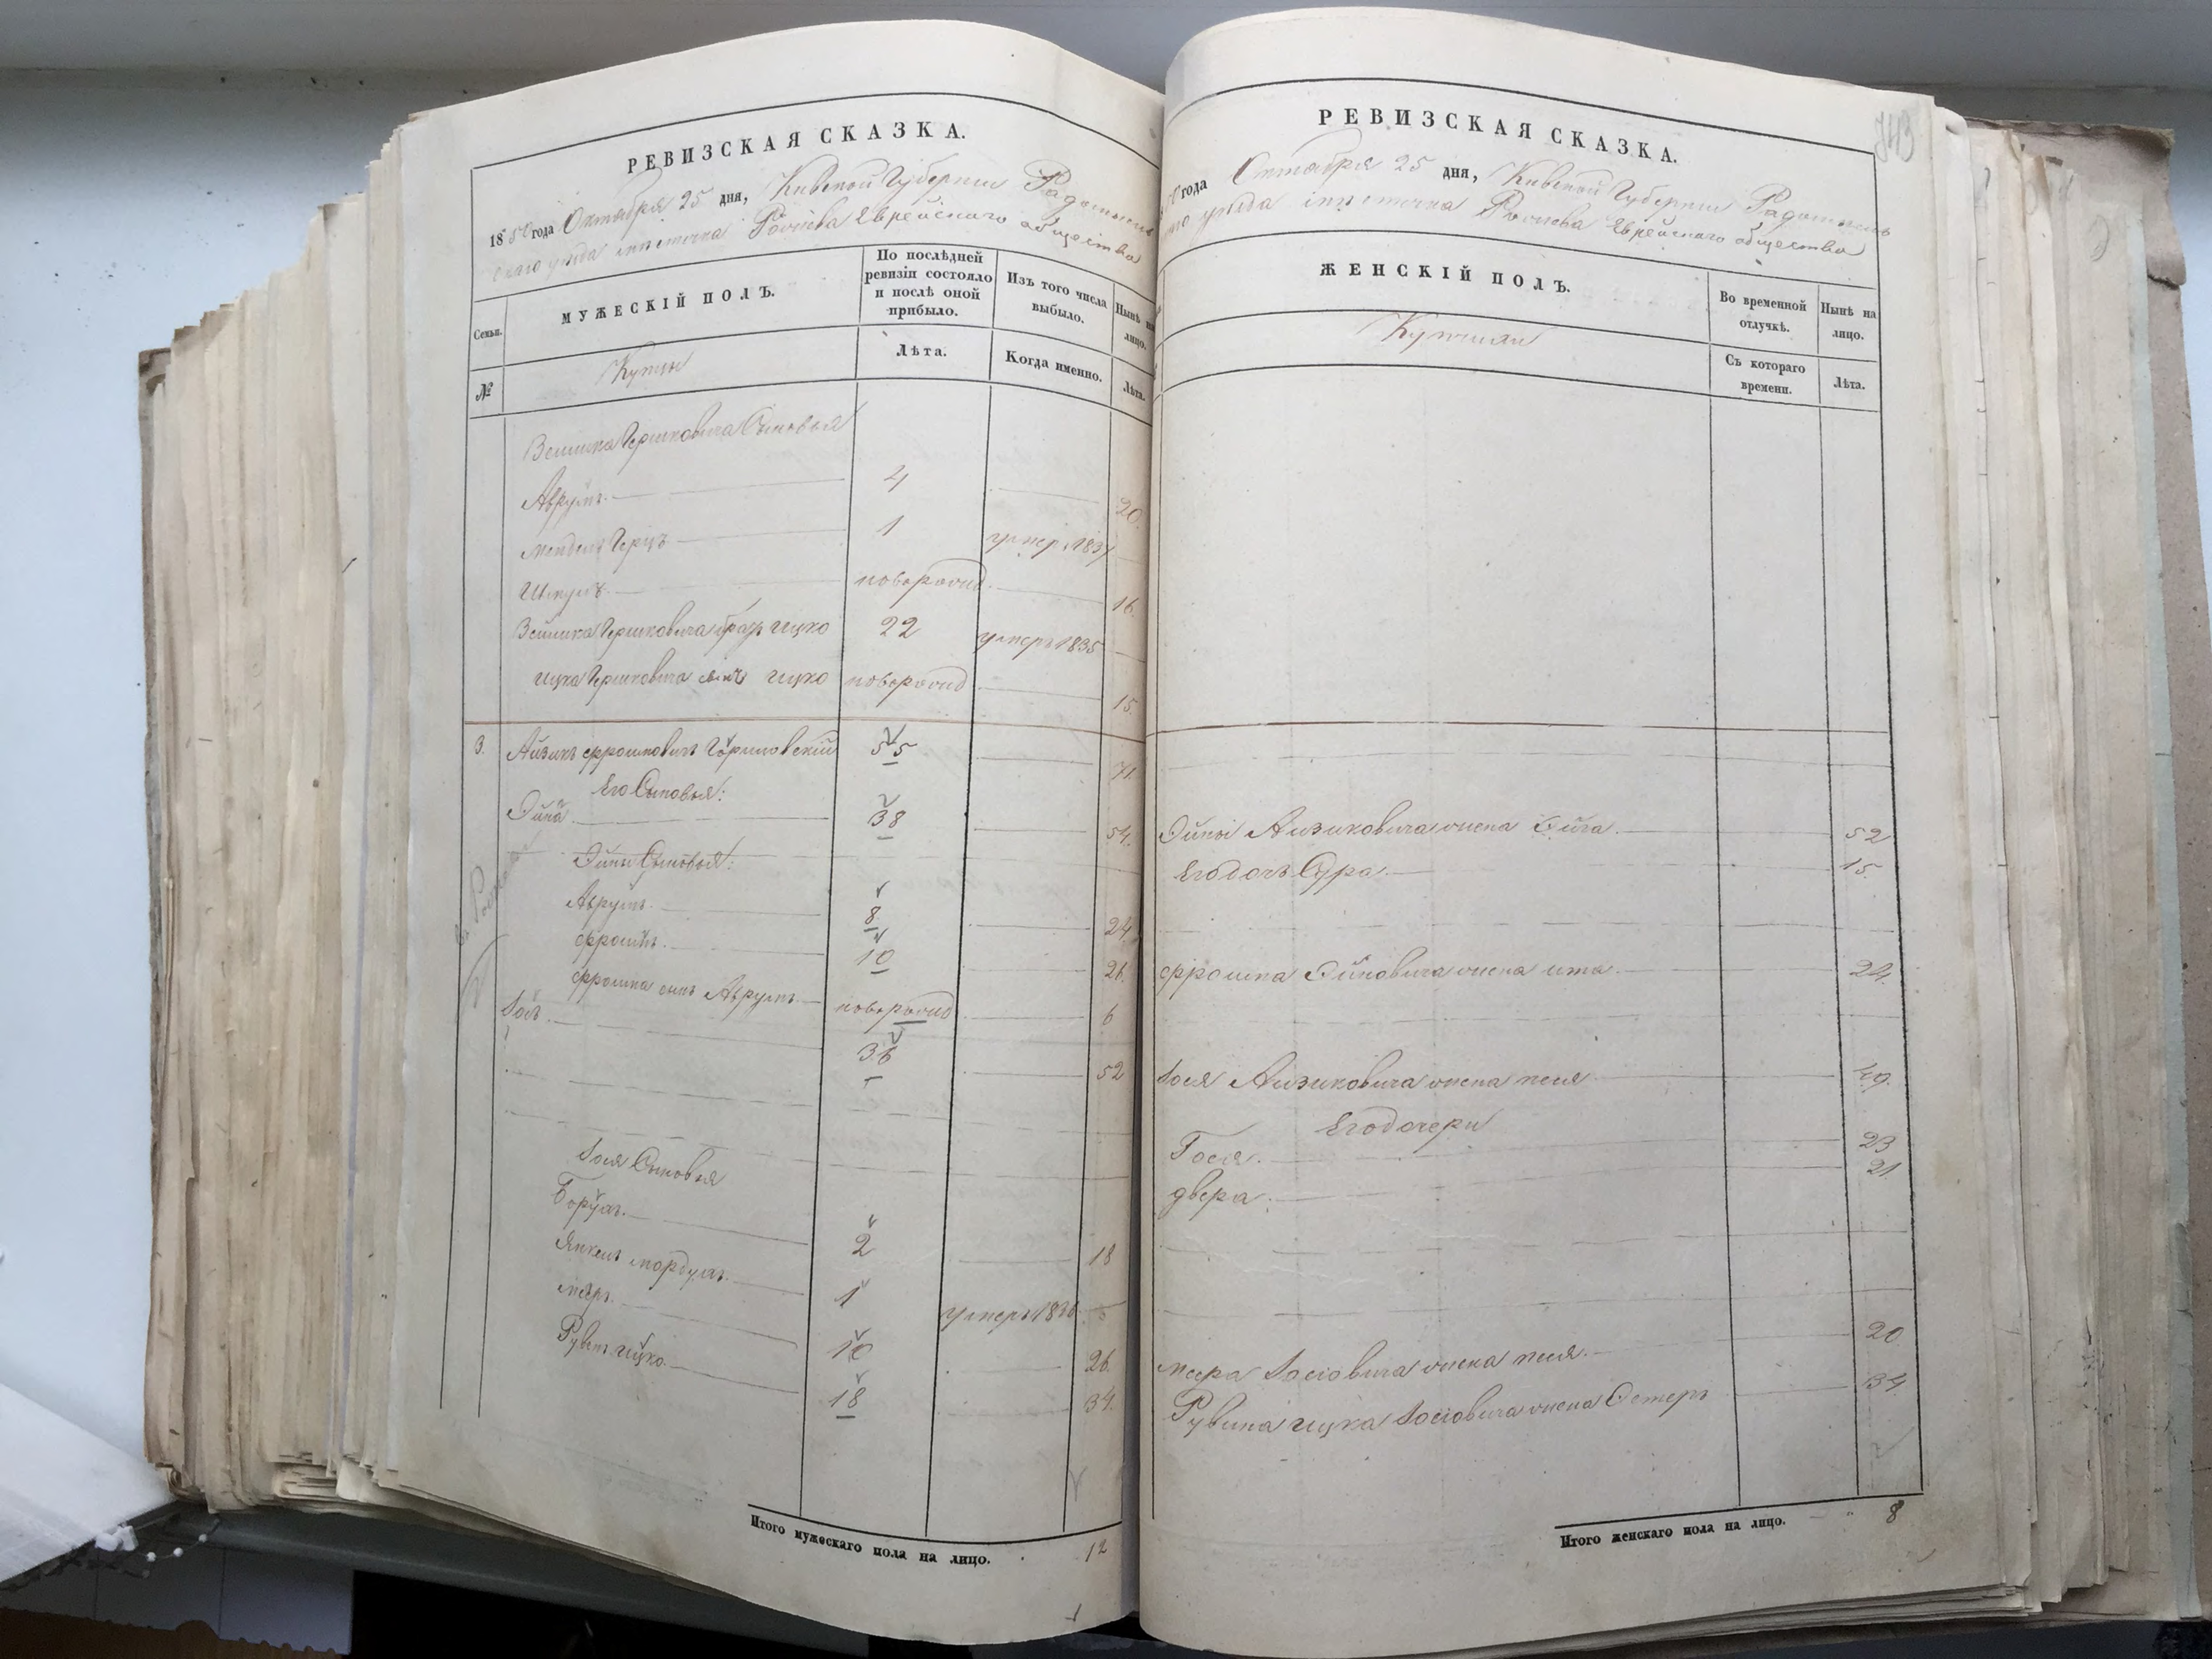 РЕВИЗСКАЯ СКАЗКА.
1850 года Октября 25 дня, Киевской Губернии Радомысль
скаго уезда местечка Еврейского общества
Семьи.
МУЖЕСКІЙ ПОЛЪ.
По послѣдней ревизіи состояло и послѣ оной прибыло.
Изъ того числа выбыло.
Нынѣ на лицо.
№
Купцы
Лѣта.
Когда именно.
Лѣта.
Гершковича Сыновья
Аврумъ 4 20.
1 умеръ 1837
новорожд. 16.
Гершковича братъ Ицко 22 умеръ 1835
Ицка Гершковича сынъ Ицко новорожд 15.
3. Айзикъ Фроимовичъ 55 71.
Его Сыновья:
Ойна 38 54.
Ойны Сыновья:
Аврумъ. 8 24.
Фроимъ. 10 26.
Фроима сынъ Аврумъ. новорожд 6
Iось 36 52
Iося Сыновья
Борухъ. 2 18
Янкель Мордухъ. 1 умеръ 1836
Меръ. 10 26.
Рувенъ Ицко. 18 34.
Итого мужескаго пола на лицо. 12
РЕВИЗСКАЯ СКАЗКА.
743
года Октября 25 дня, Киевской Губернии Радомысль
скаго уезда местечка Еврейского общества
ЖЕНСКІЙ ПОЛЪ.
Во временной отлучкѣ.
Нынѣ на лицо.
Съ котораго времени.
Лѣта.
Ойны Айзиковича жена 52
Его дочь Сура. 15.
Фроима Ойновича жена 24.
Iося Айзиковича жена Песя 49.
Его дочери
Гося. 23
Двера. 21.
Меера Iосiовича жена Песя. 20
Рувина Ицка Iосiовича жена Эстеръ 34.
Итого женскаго пола на лицо. 8